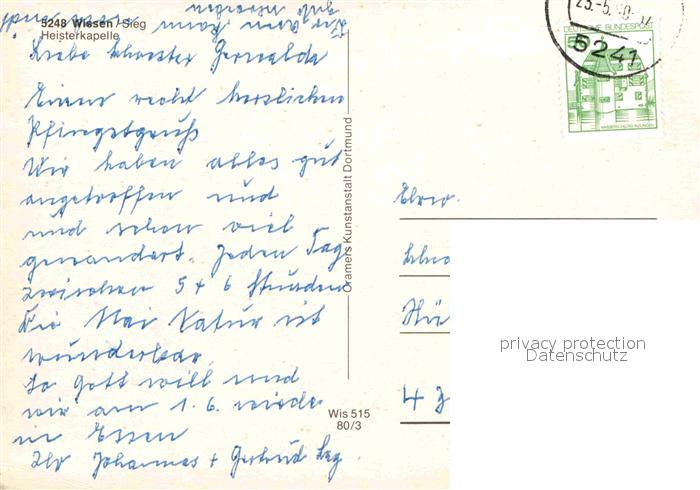 5248 Wissen/Sieg
Heisterkapelle
Liebe Schwester Gerwalda
Einen recht herzlichen
Pfingstgruß
Wir haben alles gut
angetroffen und
und schon viel
gewandert. Jeden Tag
zwischen 5 + 6 Stunden
Die Mai Natur ist
wunderbar.
So Gott will sind
wir am 1.6. wieder
in Essen
Ihr Johannes + Gertrud
Cramers Kunstanstalt Dortmund
Wis 515
80/3
DEUTSCHE BUNDESPOST
5241
Ehrw.
4
privacy protection
Datenschutz